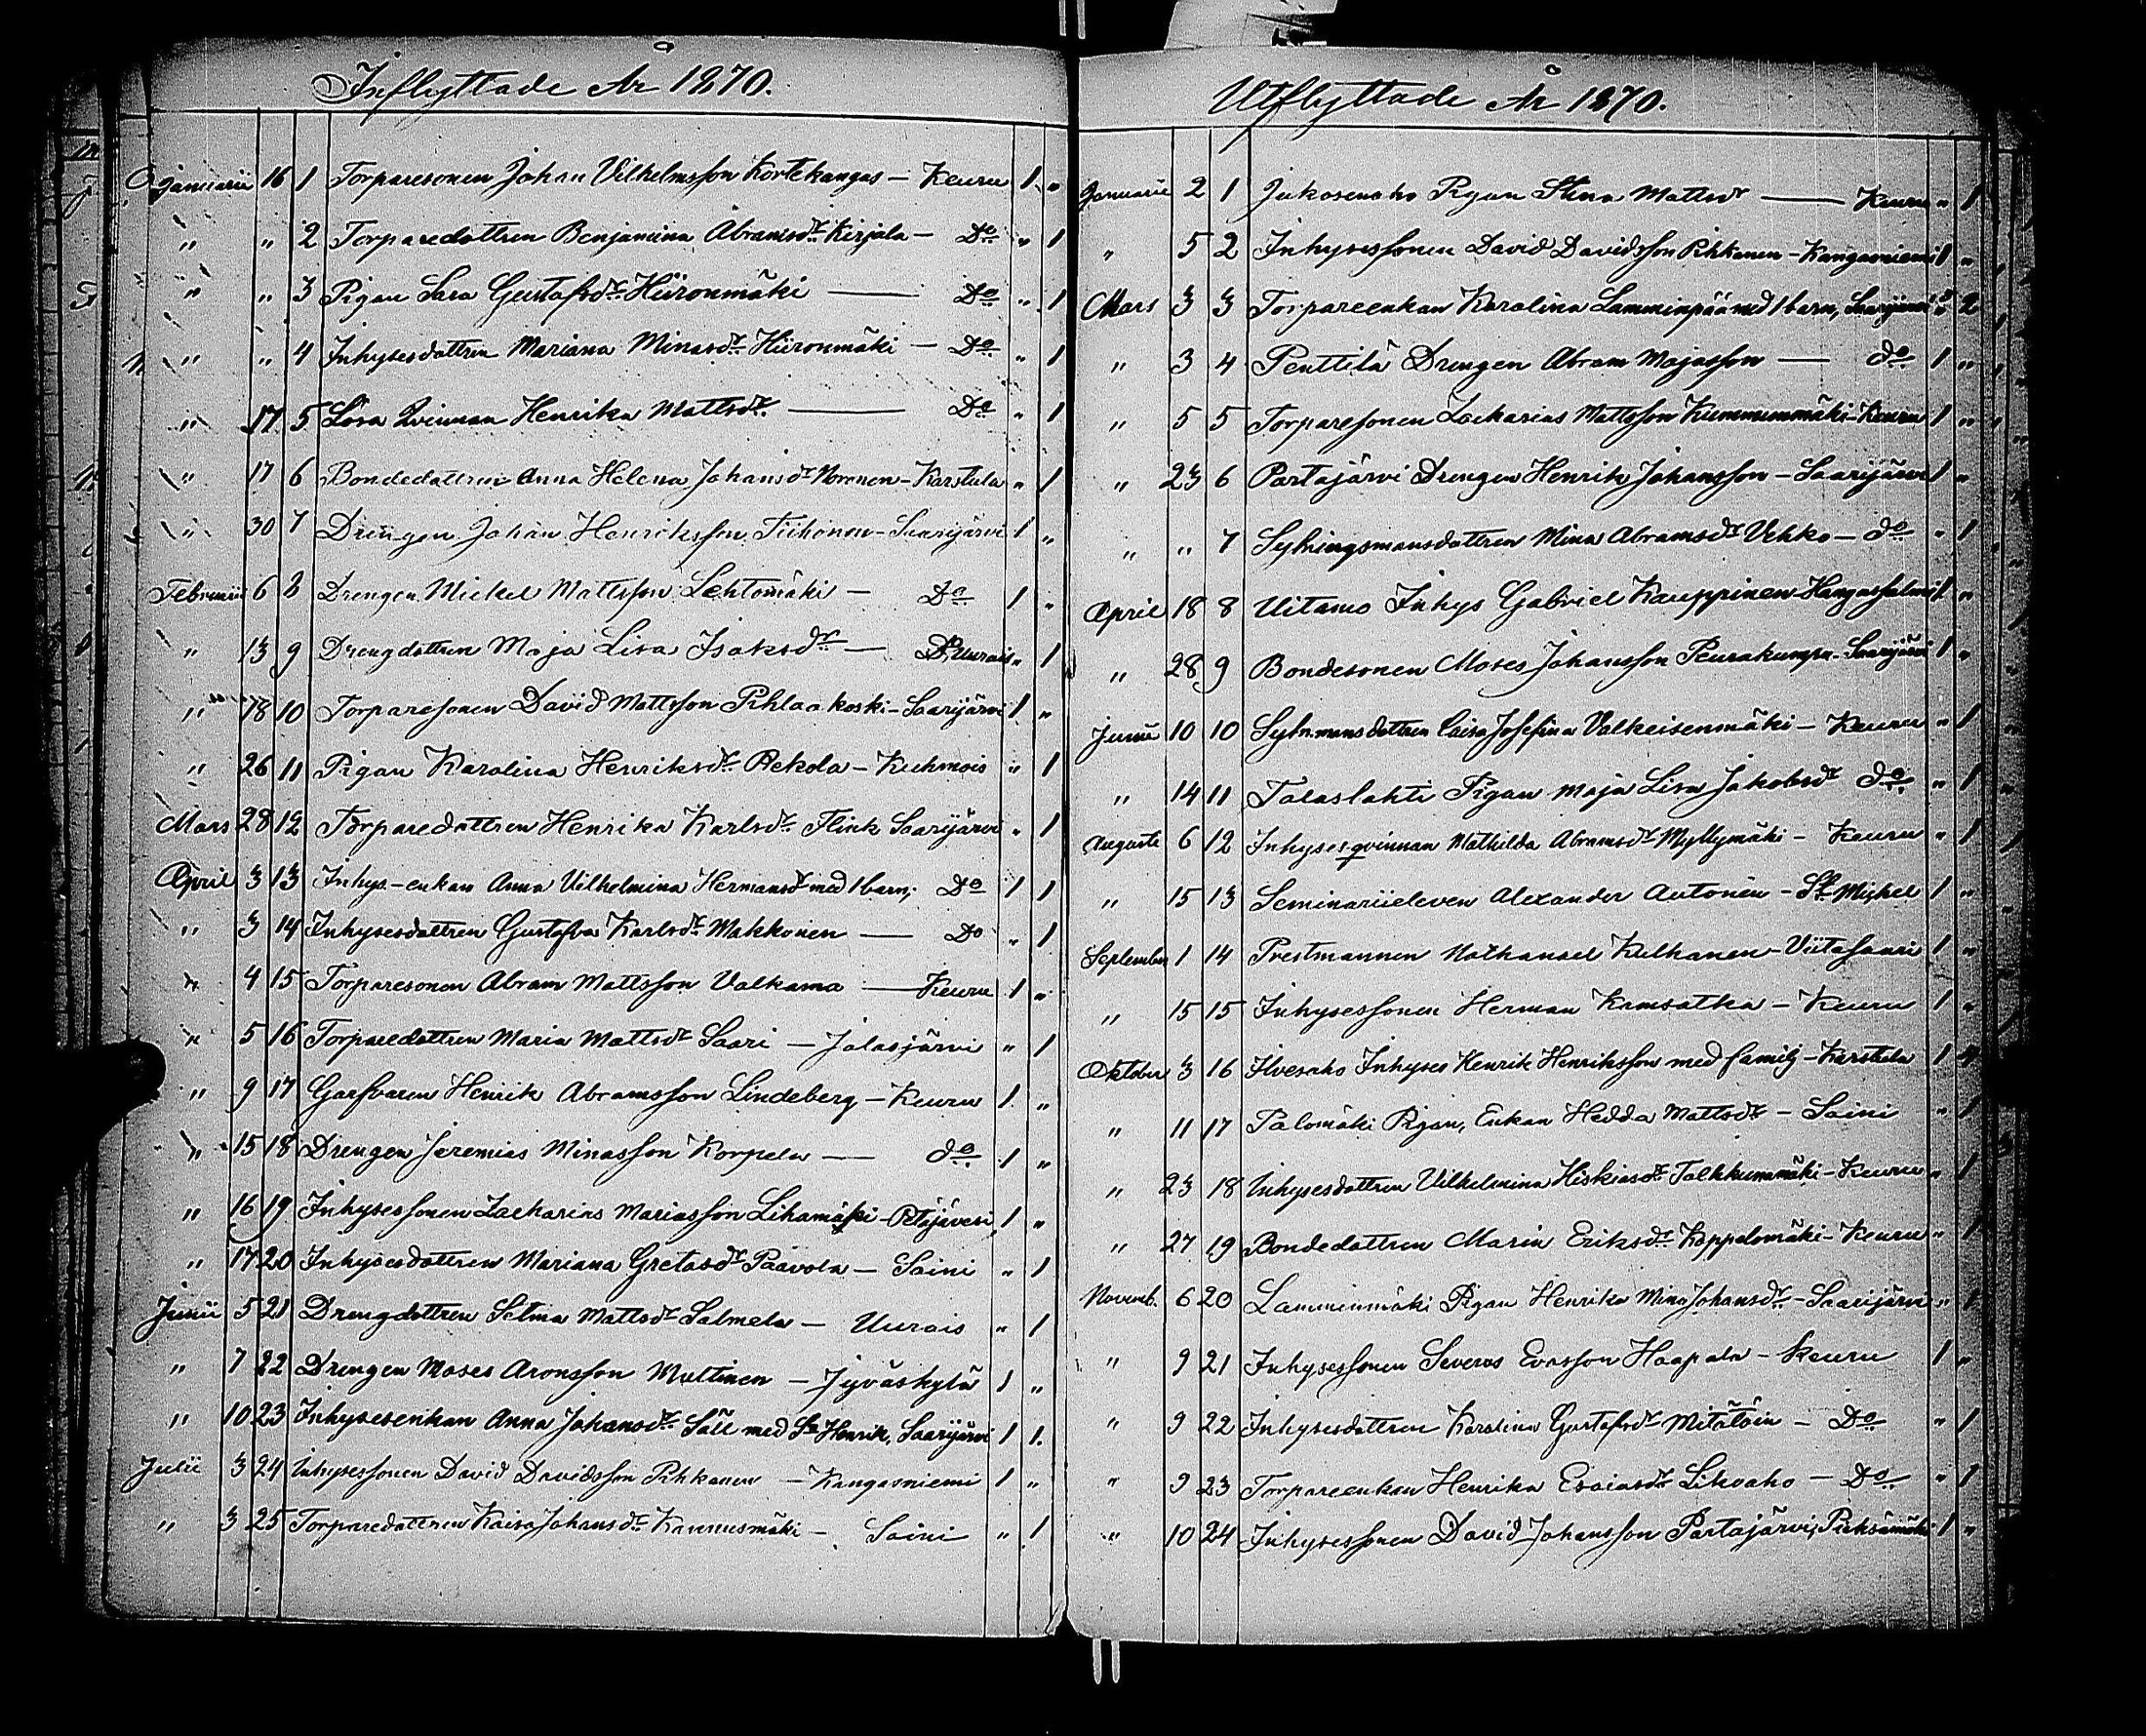 Inflyttade År 1870.
Januarii 16 1 Torparesonen Johan Vilhelmsson Kortekangas — Keuru 1 "
" " 2 Torparedottren Benjamina Abramsdr Kirjala — Do " 1
" " 3 Pigan Sara Gustafsdr Hiironmäki — Do " 1
" " 4 Inhysesdottren Mariana Minasdr Hiironmäki — Do " 1
" 17 5 Lösa Qvinnan Henrika Mattsdr — Do " 1
" 17 6 Bondedottren Anna Helena Johansdr Noronen - Karstula " 1
" 30 7 Drengen Johan Henriksson Tiihonen - Saarijärvi 1 "
Februarii 6 8 Drengen Mickel Mattsson Lehtomäki — Do 1 "
" 13 9 Drengdottren Maja Lisa Isaksdr — Uurais " 1
" 18 10 Torparesonen David Mattsson Pihlaakoski - Saarijärvi 1 "
" 26 11 Pigan Karolina Henriksdr Rekola - Kuhmois " 1
Mars 28 12 Torparedottren Henrika Karlsdr Flink Saarijärvi " 1
April 3 13 Inhys-enkan Anna Vilhelmina Hermansdr med 1 barn; Do 1 1
" 3 14 Inhysesdottren Gustafva Karlsdr Makkonen — Do " 1
" 4 15 Torparesonen Abram Mattsson Valkama — Keuru 1 "
" 5 16 Torparedottren Maria Mattsdr Saari — Jalasjärvi " 1
" 9 17 Garfvaren Henrik Abramsson Lindeberg — Keuru 1 "
" 15 18 Drengen Jeremias Minasson Korpela — do 1 "
" 16 19 Inhysessonen Zacharias Mariasson Lihamäki - Petäjävesi 1 "
" 17 20 Inhysesdottren Mariana Gretasdr Paavola — Saini " 1
Junii 5 21 Drengdottren Selma Mattsdr Salmela — Uurais " 1
" 7 22 Drengen Moses Aronsson Muttinen — Jyväskylä 1 "
" 10 23 Inhysesenkan Anna Johansdr Säll med Sn Henrik, Saarijärvi 1 1.
Julii 3 24 Inhysessonen David Davidsson Pihkanen — Kangasniemi 1 "
" 3 25 Torparedottren Kaisa Johansdr Kannusmäki — Saini " 1
Utflyttade År 1870.
Januarii 2 1 Jukosenaho Pigan Stina Mattsdr — Keuru " 1
" 5 2 Inhysessonen David Davidsson Pihkanen - Kangasniemi 1 "
Mars 3 3 Torpareenkan Karolina Lamminpää med 1 barn, Saarijärvi " 2
" 3 4 Penttilä Drengen Abram Majasson — do 1 "
" 5 5 Torparesonen Zackarias Mattsson Kummunmäki - Keuru 1 "
" 23 6 Partajärvi Drengen Henrik Johansson - Saarijärvi 1 "
" " 7 Sytningsmansdottren Mina Abramsdr Vehko — do " 1
April 18 8 Uitamo Inhys Gabriel Kauppinen Kangasjalmi 1 "
" 28 9 Bondesonen Moses Johansson Peurakumpu - Saarijärvi 1 "
Junii 10 10 Sytn.mans dottren Caisa Josefina Valkeisenmäki — Keuru " 1
" 14 11 Talaslahti Pigan Maja Lisa Jakobsdr do " 1
Augusti 6 12 Inhysesqvinnan Mathilda Abramsdr Myllymäki — Keuru " 1
" 15 13 Seminariieleven Alexander Autonen — St. Michel 1 "
September 1 14 Prestmannen Nathanael Kulhanen - Viitasaari 1 "
" 15 15 Inhysessonen Herman Kamsatka — Keuru 1 "
Oktober 3 16 Ilvesaho Inhyses Henrik Henriksson med familj - Karstula 1 4
" 11 17 Palomäki Pigan, Enkan Hedda Mattsdr — Saini " 1
" 23 18 Inhysesdottren Vilhelmina Hiskiasdr Talkkunmäki - Keuru " 1
" 27 19 Bondedottren Maria Eriksdr Koppelomäki - Keuru " 1
Novemb. 6 20 Lamminmäki Pigan Henrika Mina Johansdr — Saarijärvi " 1
" 9 21 Inhysessonen Severus Evasson Haapala — Keuru 1 "
" 9 22 Inhysesdottren Karolina Gustafsdr Mitälöin — Do " 1
" 9 23 Torpareenkan Henrika Esaiasdr Likoaho — Do " 1
" 10 24 Inhysessonen David Johansson Partajärvi, Pieksämäki 1 "